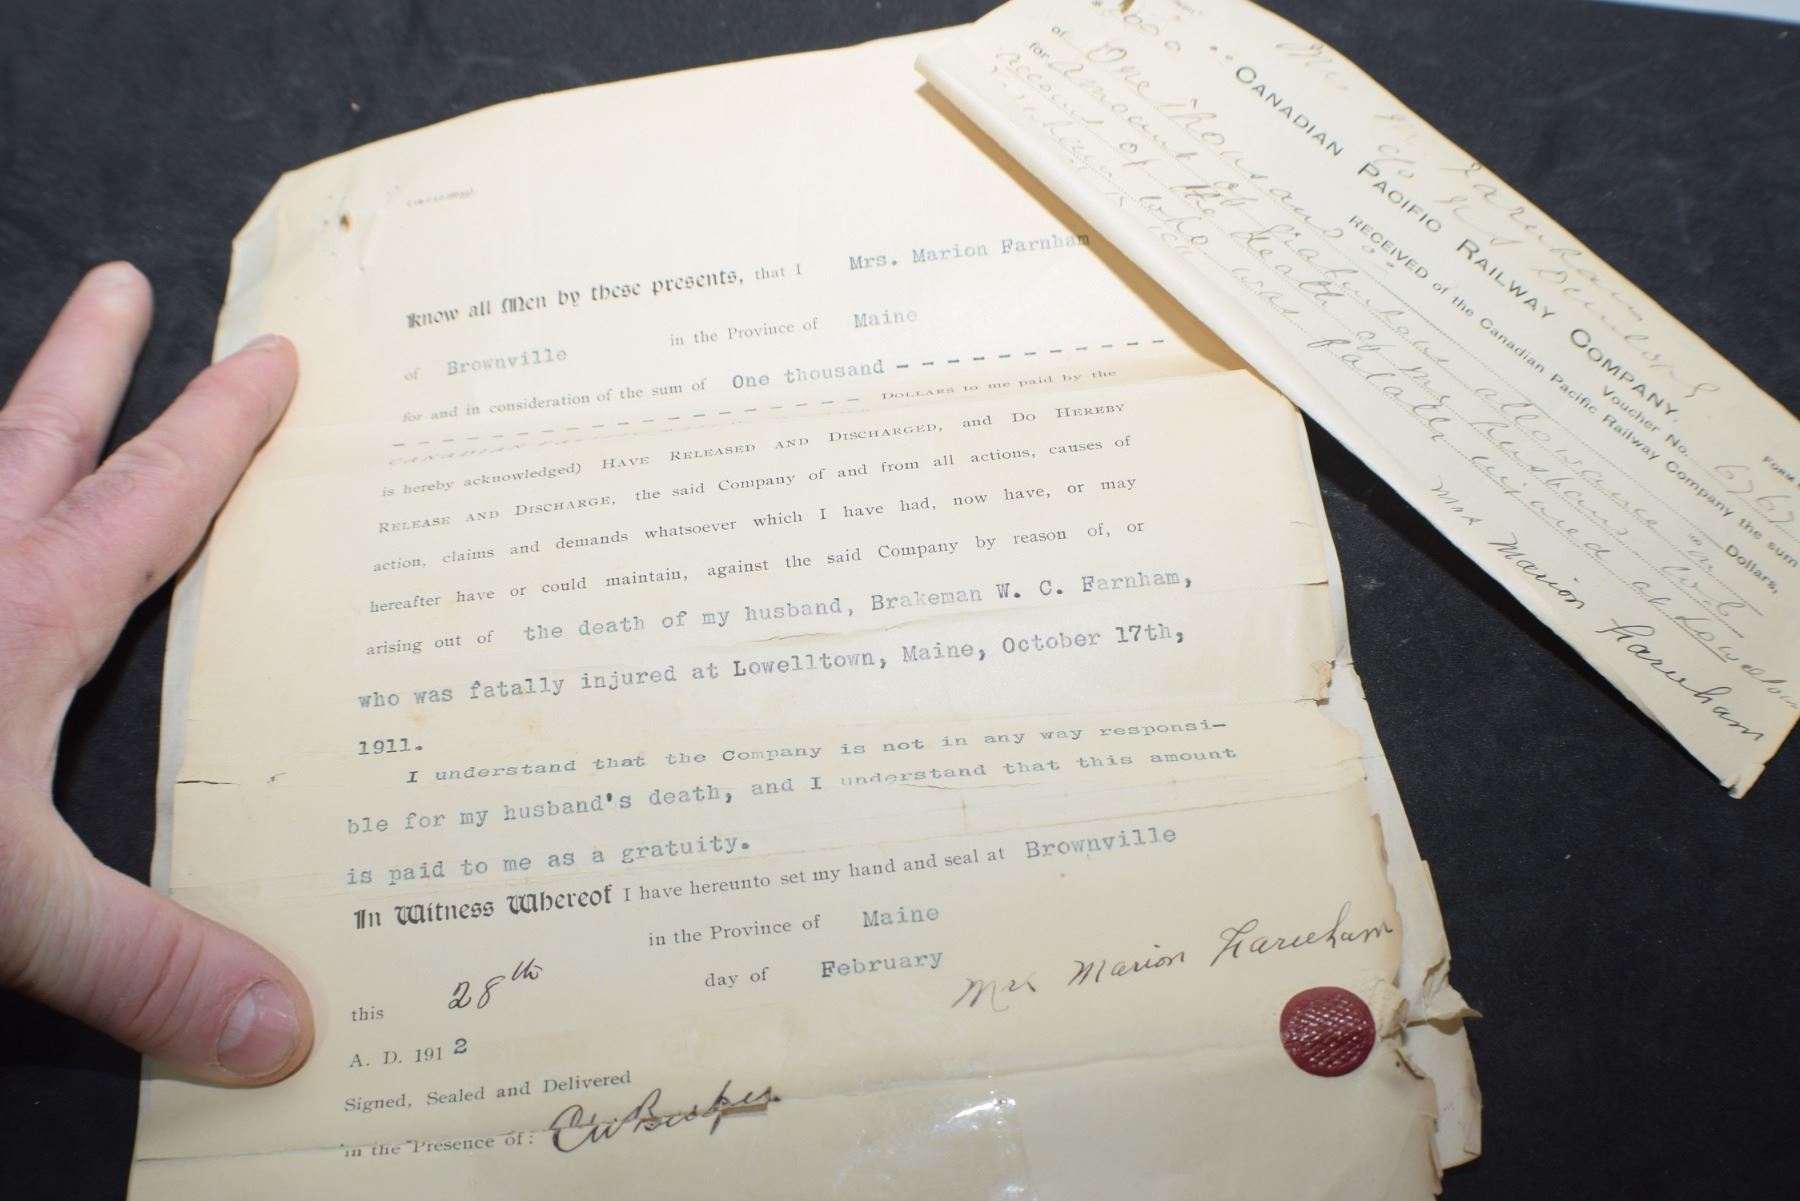 Know all Men by these presents, that I Mrs. Marion Farnham
of Brownville in the Province of Maine
for and in consideration of the sum of One thousand - - - - - - - - - - -
- - - - - - - - - - - - - - - - - - DOLLARS to me paid by the
CANADIAN
is hereby acknowledged) HAVE RELEASED AND DISCHARGED, and DO HEREBY
RELEASE AND DISCHARGE, the said Company of and from all actions, causes of
action, claims and demands whatsoever which I have had, now have, or may
hereafter have or could maintain, against the said Company by reason of, or
arising out of the death of my husband, Brakeman W. C. Farnham,
who was fatally injured at Lowelltown, Maine, October 17th,
1911.
I understand that the Company is not in any way responsi-
ble for my husband's death, and I understand that this amount
is paid to me as a gratuity.
In Witness Whereof I have hereunto set my hand and seal at Brownville
in the Province of Maine
this 28th day of February
A. D. 1912
Mrs Marion Farnham
Signed, Sealed and Delivered
in the Presence of:
CANADIAN PACIFIC RAILWAY COMPANY.
Voucher No. 6767
RECEIVED of the Canadian Pacific Railway Company the sum
of One thousand Dollars,
for amount of gratuitous allowance on
account of the death of my husband W C
Farnham who was fatally injured at Lowelltown
Mrs Marion Farnham